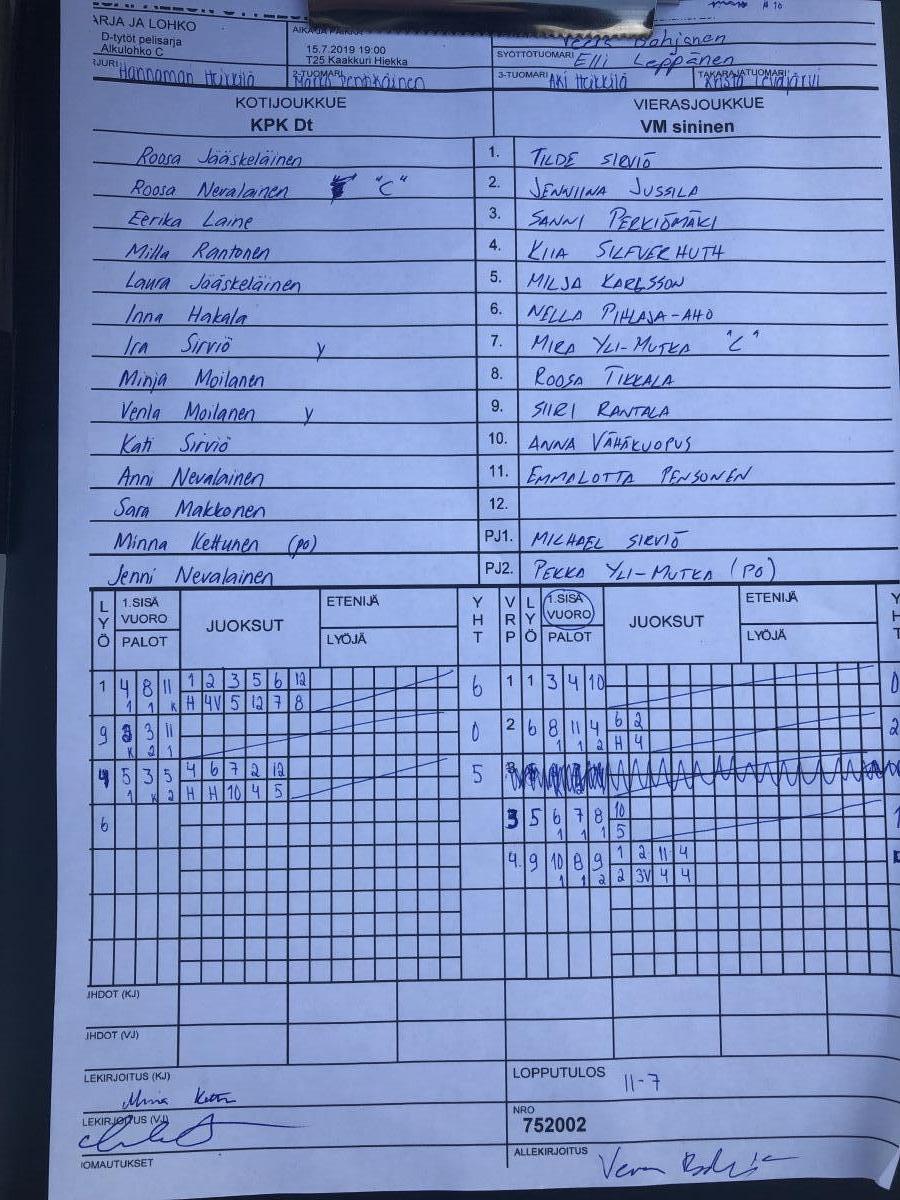 ARJA JA LOHKO
D-tytöt pelisarja
Alkulohko C
15.7.2019 19:00
T25 Kaakkuri Hiekka
SYÖTTÖTUOMARI Elli Leppänen
2-TUOMARI
3-TUOMARI Aki Heikkilä
TAKARAJATUOMARI
KOTIJOUKKUE VIERASJOUKKUE
KPK Dt VM sininen
Roosa Jääskeläinen 1. TILDE SIRVIÖ
Roosa Nevalainen "C" 2. JENNIINA JUSSILA
Eerika Laine 3. SANNI PERKIÖMÄKI
Milla Rantonen 4. KIIA SILFVERHUTH
Laura Jääskeläinen 5. MILJA KARLSSON
Inna Hakala 6. NELLA PIHLAJA-AHO
Ira Sirviö y 7. MIRA YLI-MUTKA "C"
Minja Moilanen 8. ROOSA TIKKALA
Venla Moilanen y 9. SIIRI RANTALA
Kati Sirviö 10. ANNA VÄHÄKUOPUS
Anni Nevalainen 11. EMMALOTTA PENSONEN
Sara Makkonen 12.
Minna Kettunen (po) PJ1. MICHAEL SIRVIÖ
Jenni Nevalainen PJ2. PEKKA YLI-MUTKA (PO)
LYÖ 1.SISÄ VUORO PALOT JUOKSUT ETENIJÄ LYÖJÄ YHT VRP LYÖ 1.SISÄ VUORO PALOT JUOKSUT ETENIJÄ LYÖJÄ YHT
1 4 8 11 1 2 3 5 6 12 6 1 1 3 4 10 0
1 1 K H 4V 5 12 7 8
9 3 11 0 2 6 8 11 4 6 2 2
K 2 1 1 1 2 H 4
4 5 3 5 4 6 7 2 12 5
1 K 2 H H 10 4 5
6 3 5 6 7 8 10 1
1 1 1 5
4. 9 10 8 9 1 2 11 4
1 1 2 2 3V 4 4
JHDOT (KJ)
JHDOT (VJ)
LEKIRJOITUS (KJ) LOPPUTULOS 11-7
LEKIRJOITUS (VJ) NRO
752002
IOMAUTUKSET ALLEKIRJOITUS